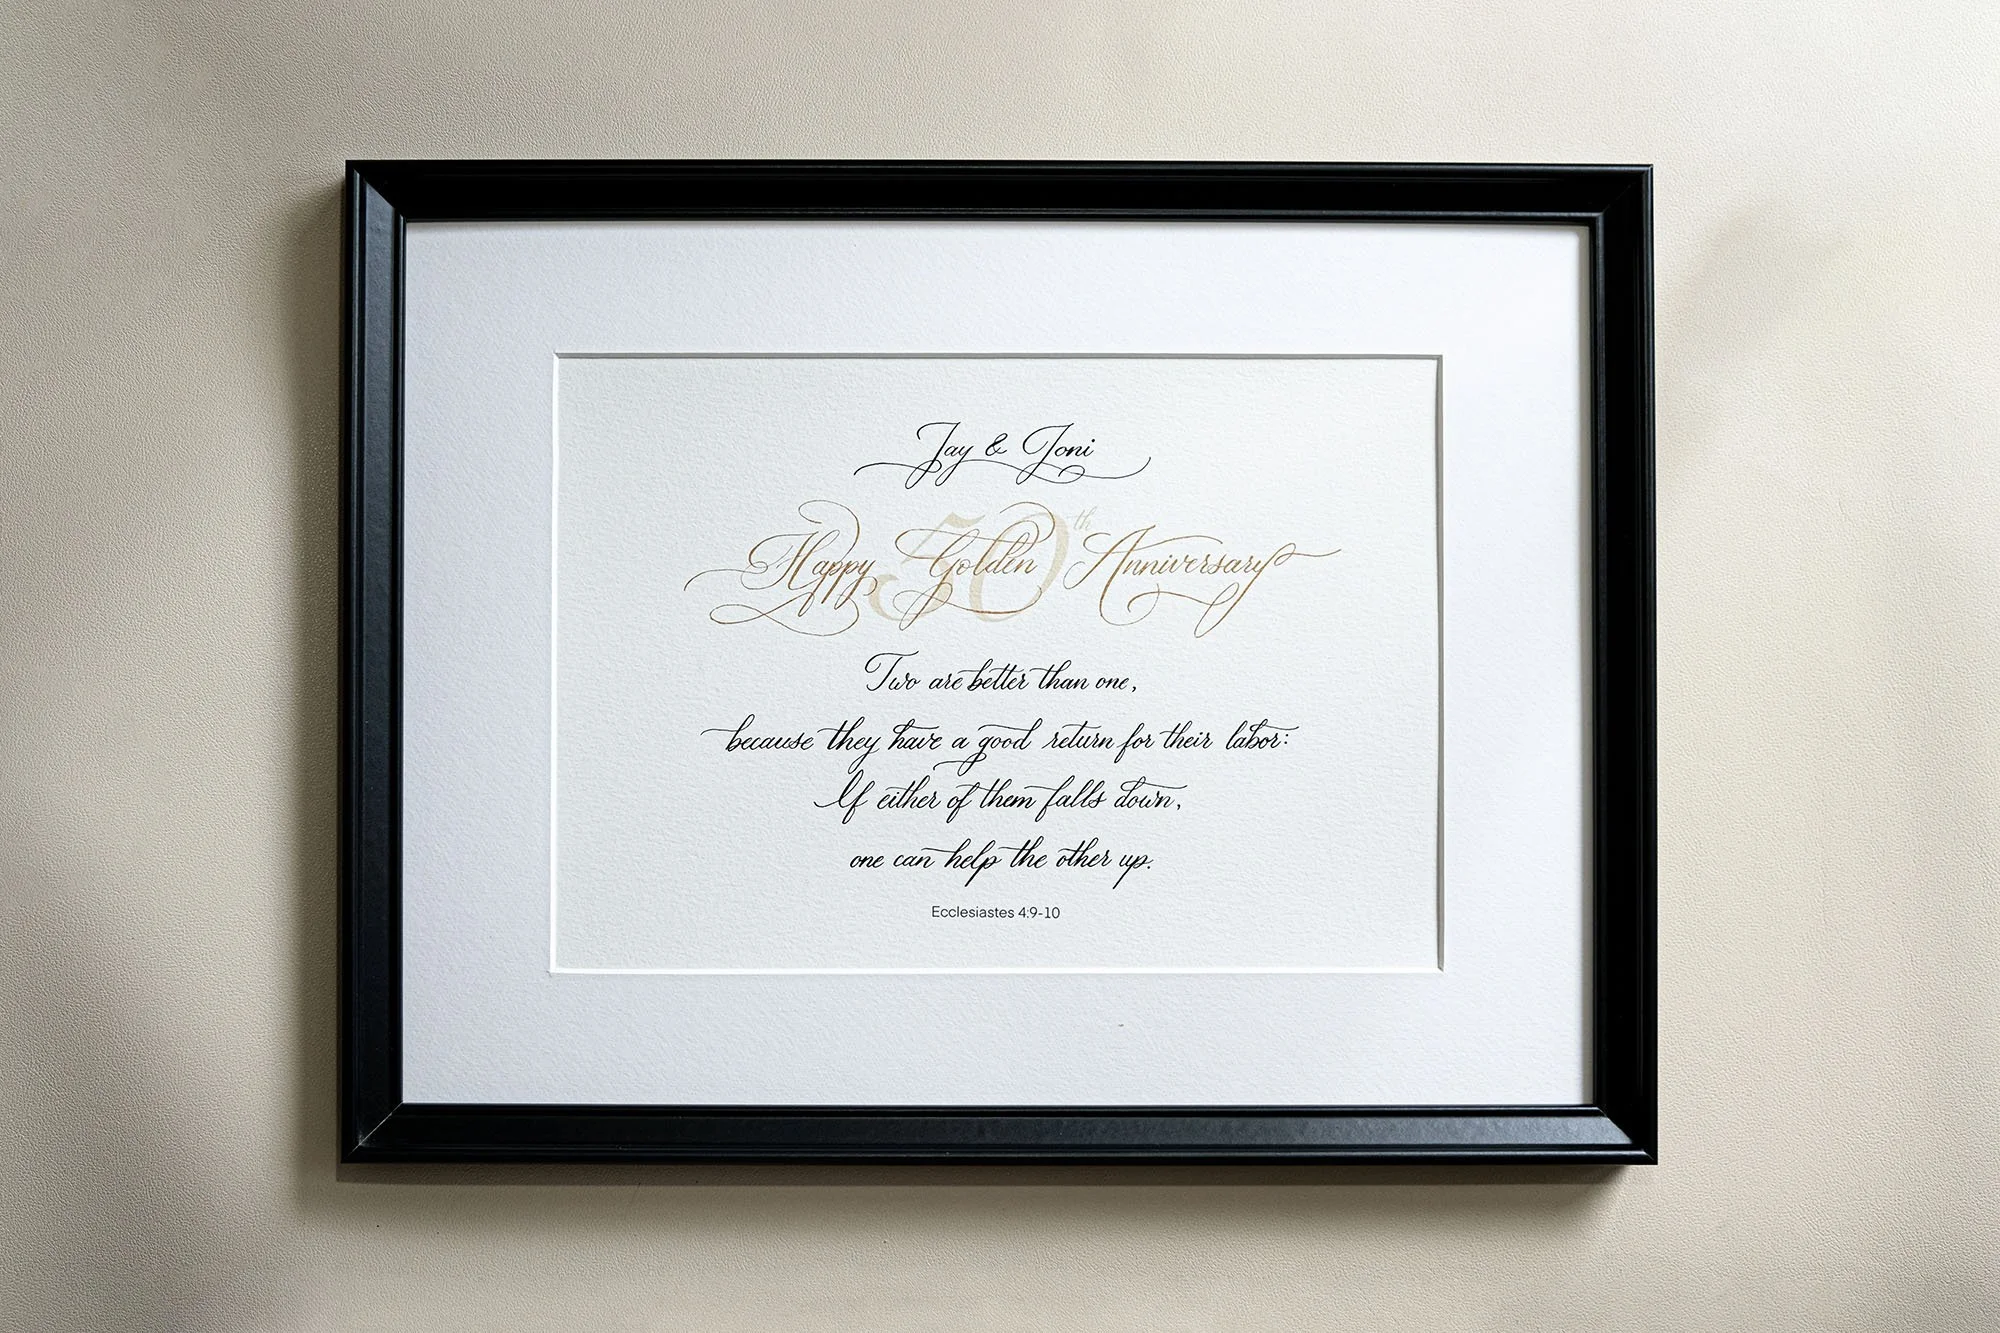 Jay & Joni
50th
Happy Golden Anniversary
Two are better than one,
because they have a good return for their labor:
If either of them falls down,
one can help the other up.
Ecclesiastes 4:9-10